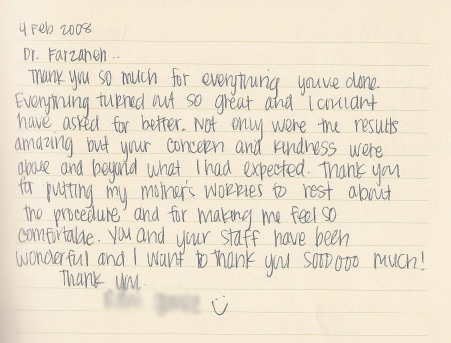 4 Feb 2008
Dr. Farzaneh..
Thank you so much for everything youve done.
Everything turned out so great and I couldnt
have asked for better. Not only were the results
amazing but your concern and kindness were
above and beyond what I had expected. Thank you
for putting my mother's worries to rest about
the procedure and for making me feel so
comfortable. You and your staff have been
wonderful and I want to thank you sooooooo much!
Thank you.